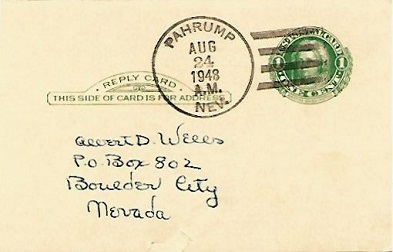 PAHRUMP
AUG
24
1948
A.M.
NEV.
1 1
REPLY CARD
THIS SIDE OF CARD IS FOR ADDRESS
Albert D. Wells
P.O. Box 802
Boulder City
Nevada